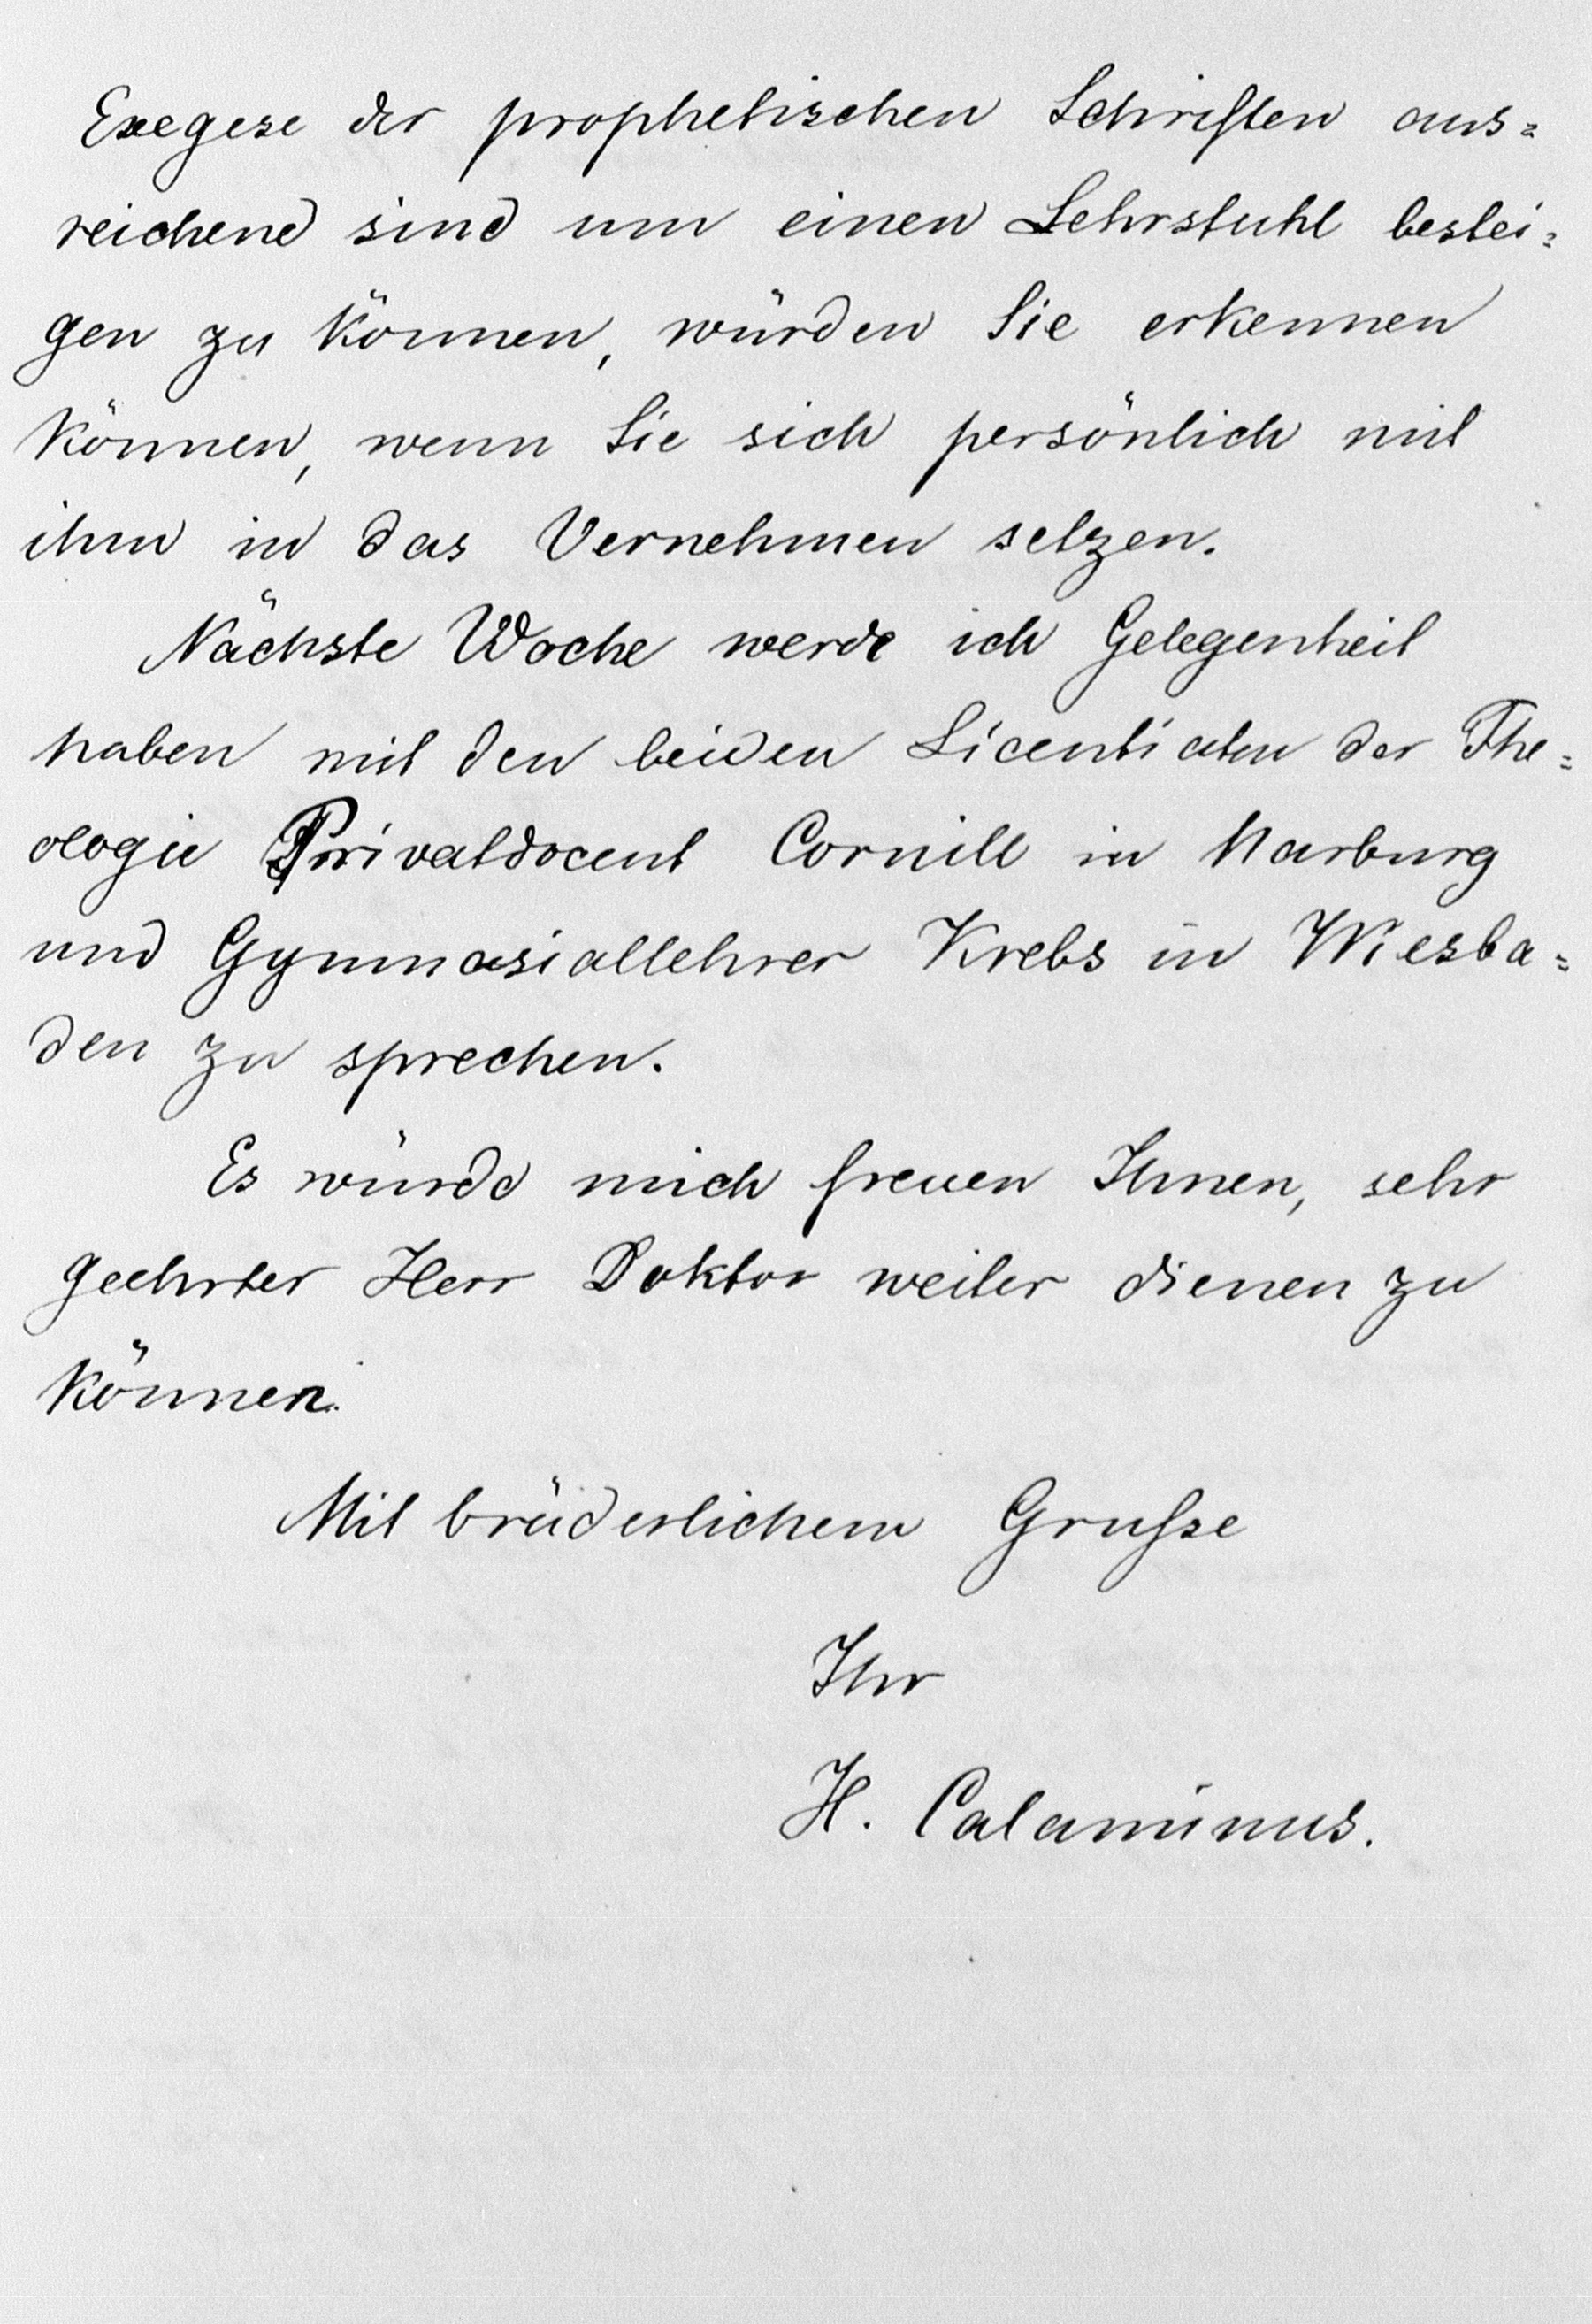 Exegese der prophetischen Schriften aus=
reichend sind um einen Lehrstuhl bestei=
gen zu können, würden Sie erkennen
können, wenn Sie sich persönlich mit
ihm in das Vernehmen setzen.
Nächste Woche werde ich Gelegenheit
haben mit den beiden Licentiaten der The=
ologie Privatdocent Cornill in Marburg
und Gymnasiallehrer Krebs in Wiesba=
den zu sprechen.
Es würde mich freuen Ihnen, sehr
geehrter Herr Doktor weiter dienen zu
können.
Mit brüderlichem Grusse
Ihr
H. Calaminus.